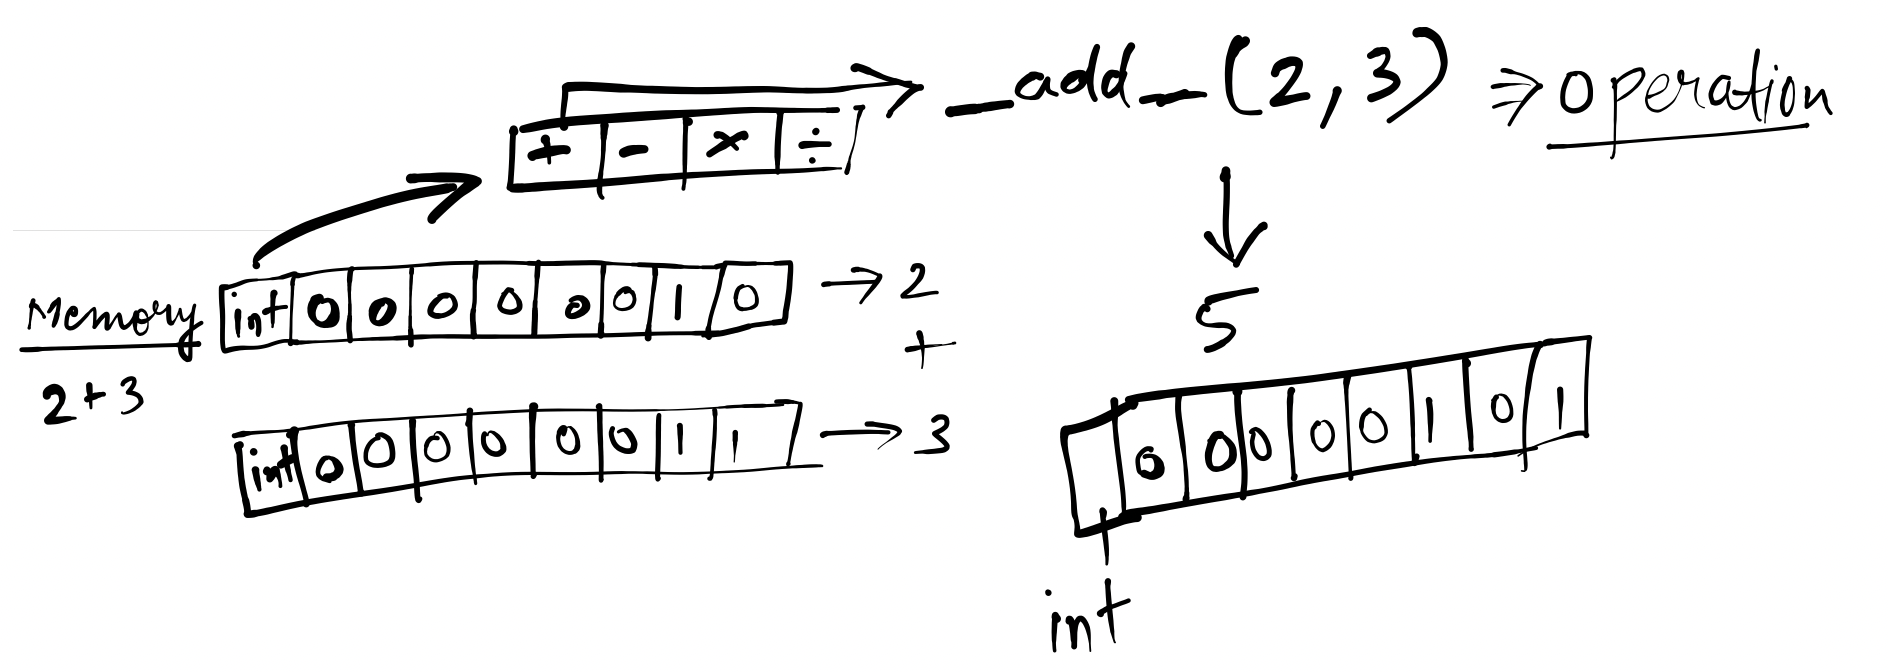 _add_(2,3) ⇒ operation
+ - × ÷
Memory
2+3
int 0 0 0 0 0 0 1 0 → 2
+
int 0 0 0 0 0 0 1 1 → 3
5
0 0 0 0 0 1 0 1
int